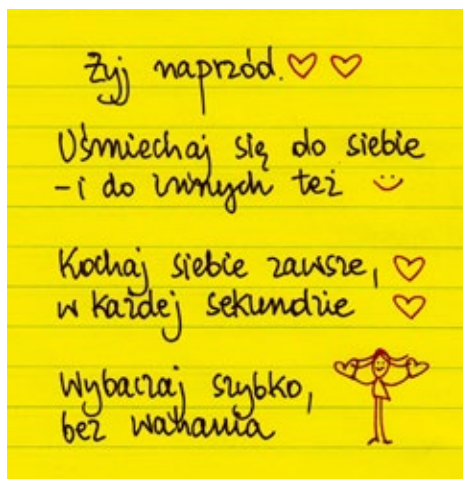 Żyj naprzód.
Uśmiechaj się do siebie
- i do innych też
Kochaj siebie zawsze,
w każdej sekundzie
Wybaczaj szybko,
bez wahania